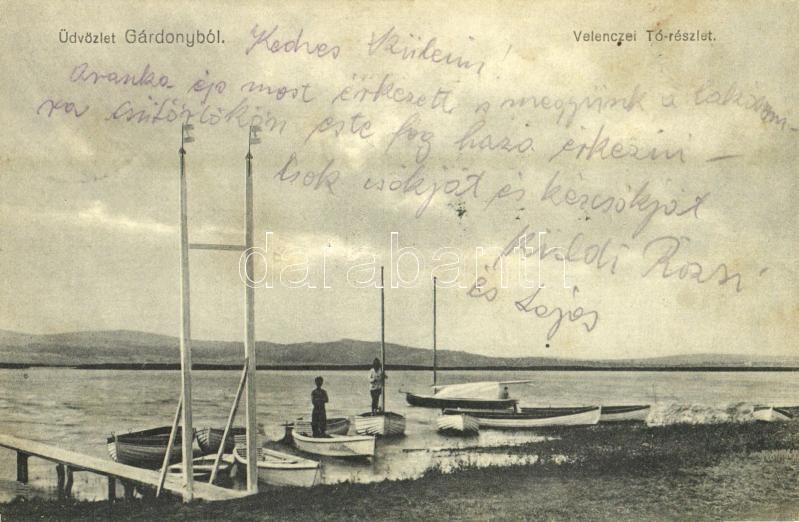 Üdvözlet Gárdonyból.
Velenczei Tó-részlet.
Kedves Szüleim!
Aranka ép most érkezett, s megyünk a
ra csütörtökön este fog haza érkezni –
Sok csókját és kézcsókját
Küldi Rózsi
és Lajos
darabanth